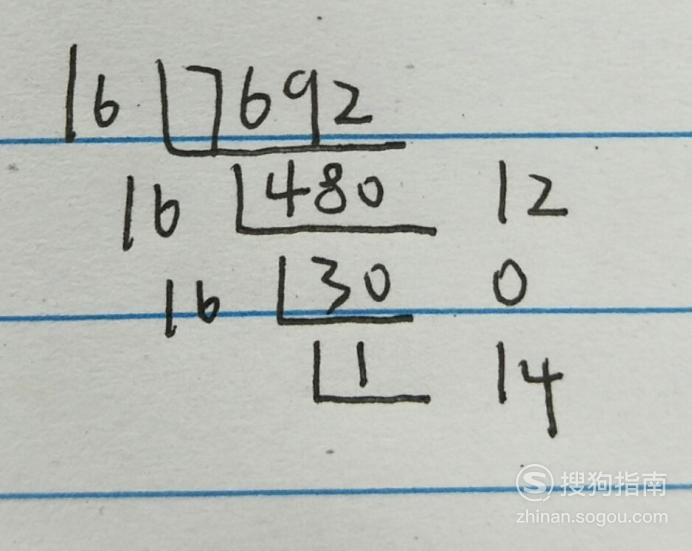 16 7692
16 480 12
16 30 0
1 14
搜狗指南
zhinan.sogou.com